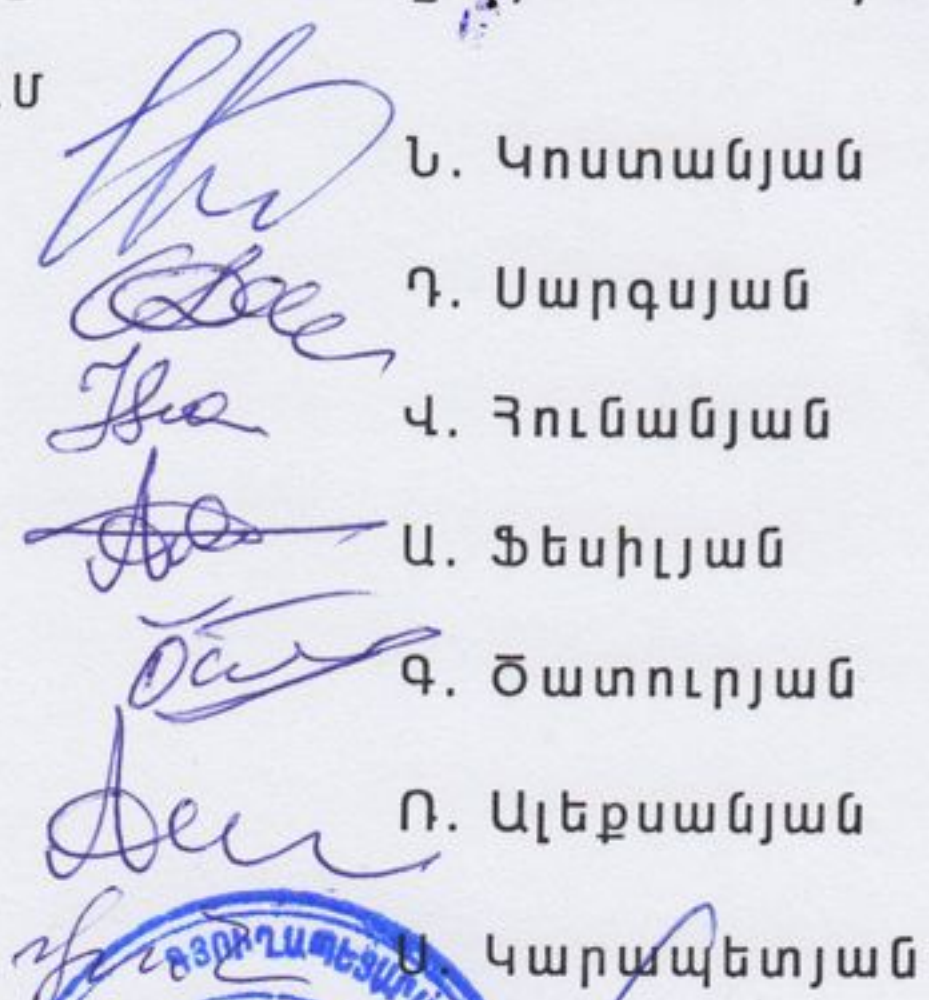 Մ
Ն. Կոստանյան
Դ. Սարգսյան
Վ. Հունանյան
Ա. Ֆեսիլյան
Գ. Ծատուրյան
Ռ. Ալեքսանյան
Ա. Կարապետյան